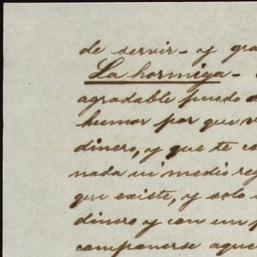 de servir - y gra
La hormiga -
agradable puedo
humor por que
dinero, y que te co
nada ni medio reg
que existe, y solo
dinero y con un
componerse aque